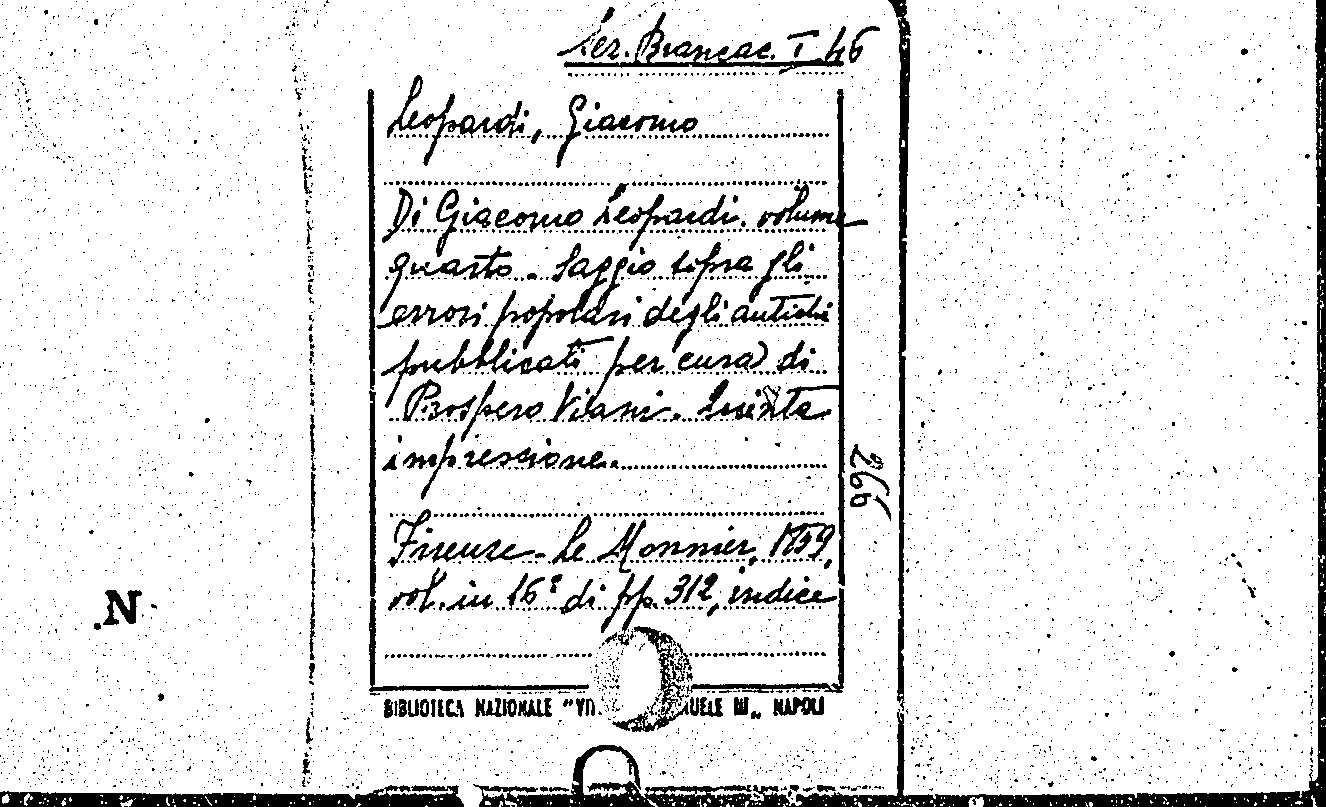 Ser. Brancac. I 46
Leopardi, Giacomo
Di Giacomo Leopardi. volume
quarto. Saggio sopra gli
errori popolari degli antichi
pubblicati per cura di
Prospero Viani. Quinta
impressione.
266
Firenze - Le Monnier, 1859,
vol. in 16° di pp. 312, indice
.N
BIBLIOTECA NAZIONALE "VIT UELE III„ NAPOLI